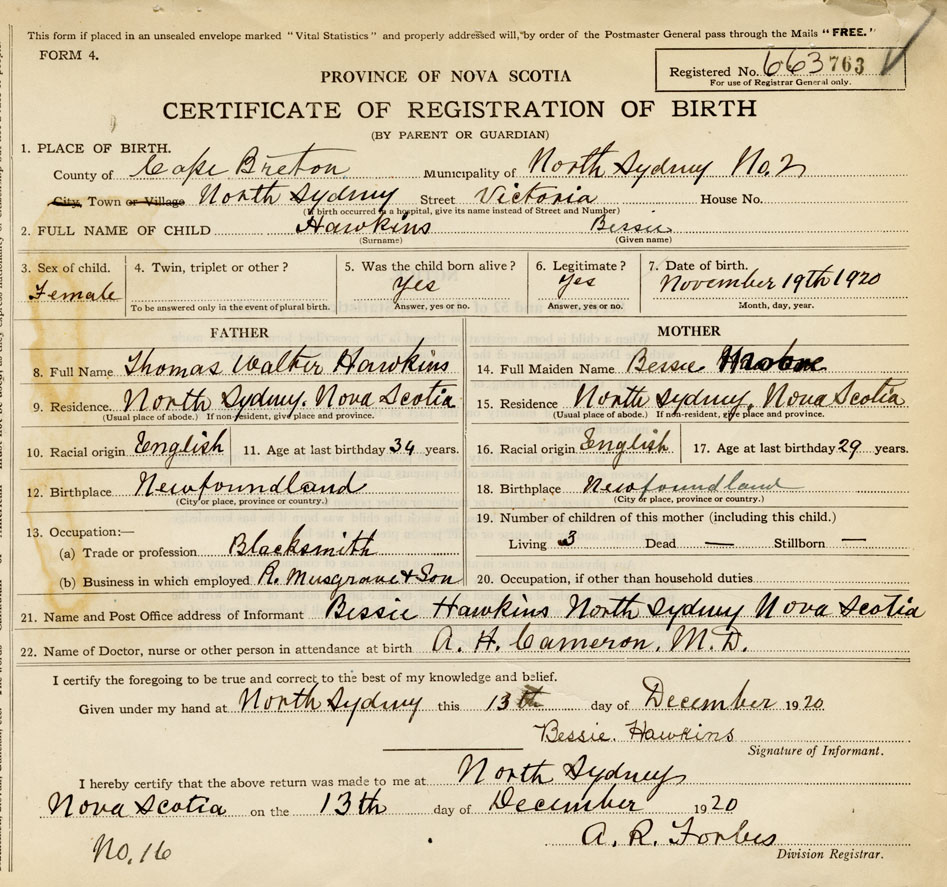 This form if placed in an unsealed envelope marked "Vital Statistics" and properly addressed will, by order of the Postmaster General pass through the Mails "FREE."
FORM 4.
PROVINCE OF NOVA SCOTIA
Registered No. 663763
For use of Registrar General only.
CERTIFICATE OF REGISTRATION OF BIRTH
(BY PARENT OR GUARDIAN)
1. PLACE OF BIRTH.
County of Cape Breton Municipality of North Sydney No. 2
City, Town or Village North Sydney Street Victoria House No.
(If birth occurred in a hospital, give its name instead of Street and Number)
2. FULL NAME OF CHILD Hawkins Bessie
(Surname) (Given name)
3. Sex of child. 4. Twin, triplet or other? 5. Was the child born alive? 6. Legitimate? 7. Date of birth.
Female Yes Yes November 19th 1920
To be answered only in the event of plural birth. Answer, yes or no. Answer, yes or no. Month, day, year.
FATHER
8. Full Name Thomas Walter Hawkins
9. Residence North Sydney. Nova Scotia
(Usual place of abode.) If non-resident, give place and province.
10. Racial origin English 11. Age at last birthday 34 years.
12. Birthplace Newfoundland
(City or place, province or country.)
13. Occupation:—
(a) Trade or profession Blacksmith
(b) Business in which employed R. Musgrave & Son
MOTHER
14. Full Maiden Name Bessie
15. Residence North Sydney, Nova Scotia
(Usual place of abode.) If non-resident, give place and province.
16. Racial origin English 17. Age at last birthday 29 years.
18. Birthplace Newfoundland
(City or place, province or country.)
19. Number of children of this mother (including this child.)
Living 3 Dead — Stillborn —
20. Occupation, if other than household duties
21. Name and Post Office address of Informant Bessie Hawkins North Sydney Nova Scotia
22. Name of Doctor, nurse or other person in attendance at birth A. H. Cameron, M.D.
I certify the foregoing to be true and correct to the best of my knowledge and belief.
Given under my hand at North Sydney this 13th day of December 1920
Bessie. Hawkins
Signature of Informant.
I hereby certify that the above return was made to me at North Sydney
Nova Scotia on the 13th day of December 1920
A. R. Forbes
Division Registrar.
No. 16